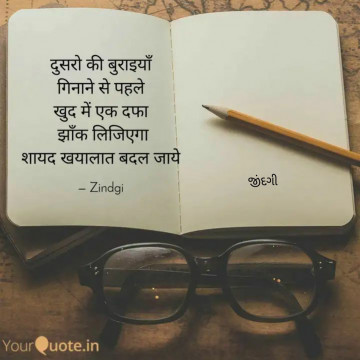 दुसरो की बुराइयाँ
गिनाने से पहले
खुद में एक दफा
झाँक लिजिएगा
शायद खयालात बदल जाये
– Zindgi
જીંદગી
YourQuote.in